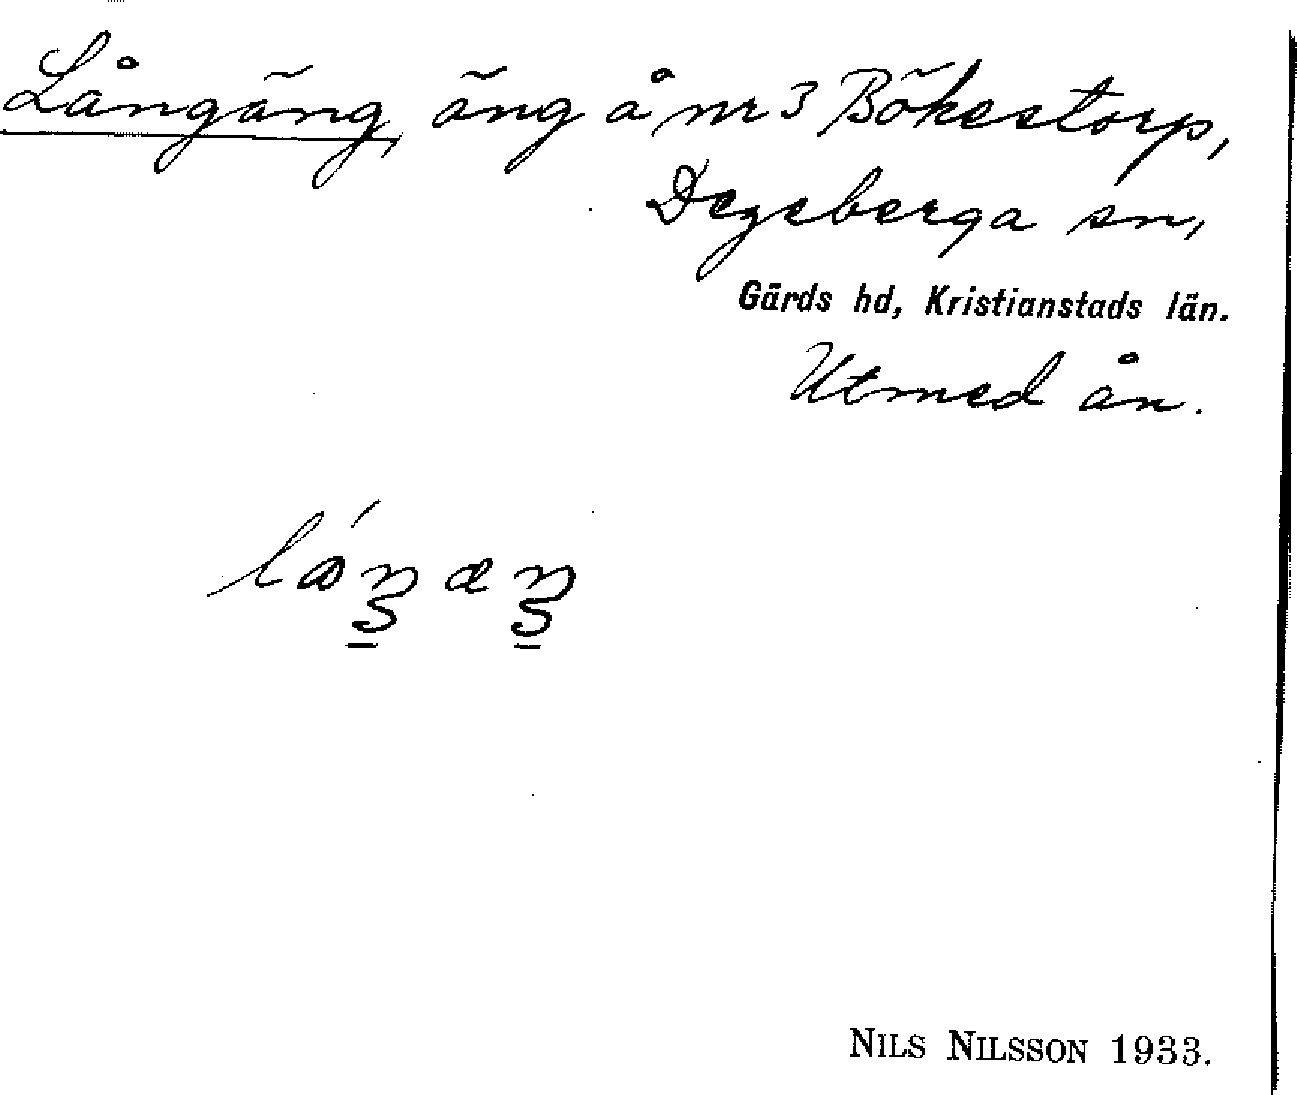 Långäng, äng å nr 3 Bökestorp,
Degeberga sn,
Gärds hd, Kristianstads län.
Utmed ån.
NILS NILSSON 1933.